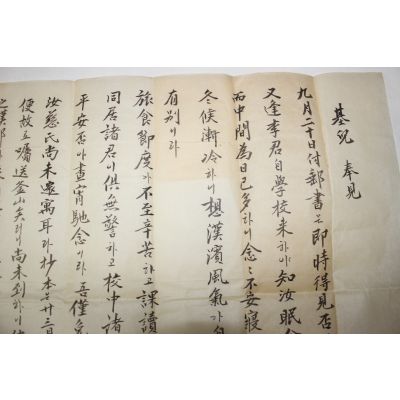 基兒 奉見
九月二十日付郵書는即時得見否
又逢李君自學校来하야知汝眠食
而中間為日已多하니念念不安寢
冬候漸冷하니想漢濱風氣가
有別이라
旅食節度가不至辛苦하고課讀
同居諸君이俱無警하고校中諸
平安否아晝宵馳念이라吾僅免
汝慈氏尚未還寓耳라抄本은廿三日
便故玉囑送釜山矣러니尚未到하니